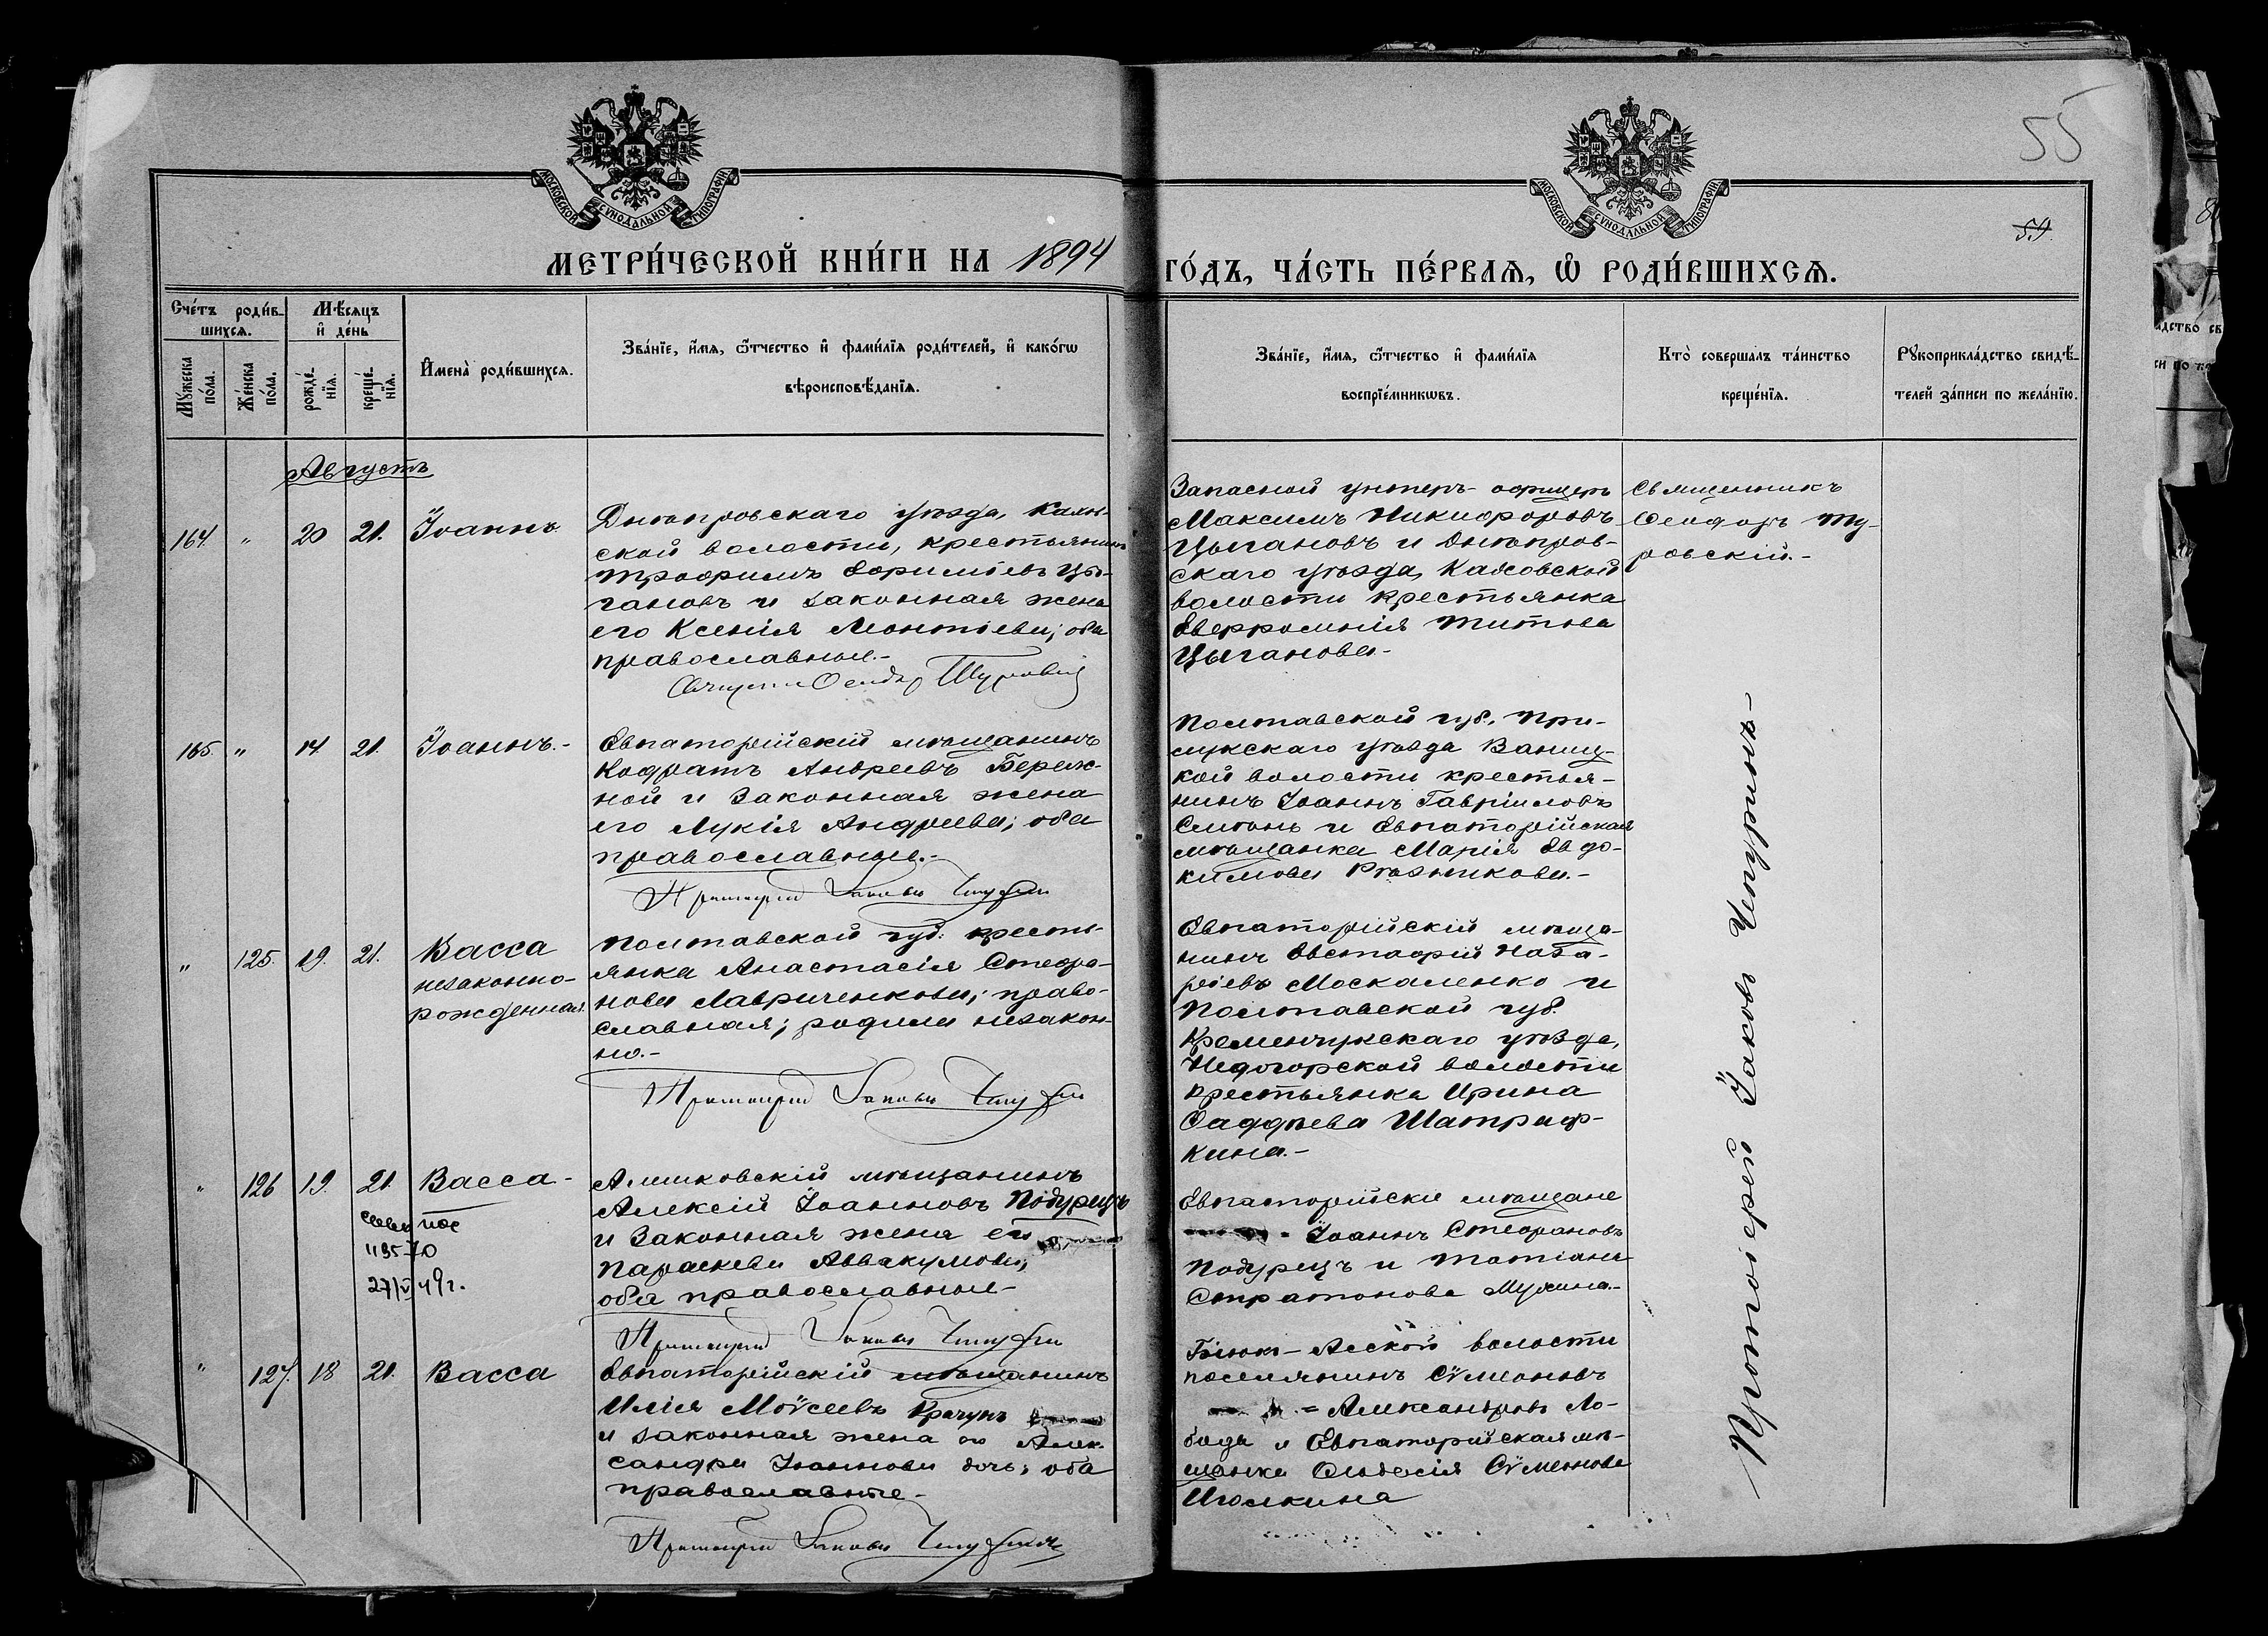 55
59.
МОСКОВСКОЙ СѴНОДАЛЬНОЙ ТИПОГРАФІИ
МОСКОВСКОЙ СѴНОДАЛЬНОЙ ТИПОГРАФІИ
МЕТРИ́ЧЕСКОЙ КНИ́ГИ НА 1894 ГО́ДЪ, ЧА́СТЬ ПЕ́РВАѦ, Ѿ РОДИ́ВШИХСѦ.
Сче́тъ роди́в-
шихсѧ.
Мѣ́сѧцъ
и де́нь
Мꙋжеска по́ла.
Же́нска по́ла.
рожде́-
нїѧ.
креще́-
нїѧ.
И҆мена̀ роди́вшихсѧ.
Зва́нїе, и҆́мѧ, ѻ҆́тчество и҆ фами́лїѧ роди́телей, и҆ како́гѡ
вѣроисповѣ́данїѧ.
Зва́нїе, и҆́мѧ, ѻ҆́тчество и҆ фами́лїѧ
воспрїе́мникѡвъ.
Кто̀ совершалъ та́инство
креще́нїѧ.
Рꙋкоприкла́дство свидѣ́-
телей за́писи по жела́нїю.
Августъ
164. " 20 21. Іоаннъ
Днѣпровскаго уѣзда, Каин-
ской волости, крестьянинъ
Трофимъ Ефиміевъ Цы-
гановъ и законная жена
его Ксенія Монтіева; оба
православные.-
Запасной унтеръ-офицеръ
Максимъ Никифоровъ
Цыгановъ и Днѣпров-
скаго уѣзда, Каховской
волости крестьянка
Евфросинія Титова
Цыганова.-
Священникъ
Ѳеодоръ Ту-
ровскій.-
165. " 14. 21. Іоаннъ.-
Евпаторійскій мѣщанинъ
Кодратъ Андреевъ Береж-
ной и законная жена
его Лукія Андреева; оба
православные.-
Протоіерей Іаковъ Чепуринъ
Полтавской губ. При-
лукскаго уѣзда
кой волости крестья-
нинъ Іоаннъ Гавріиловъ
и Евпаторійская
мѣщанка Марія Евдо-
кимова Рѣзникова.-
" 125. 19. 21. Васса
незаконно-
рожденная
Полтавской губ. кресть-
янка Анастасія Стефа-
нова Лавриченкова; право-
славная; родила незакон-
но.-
Протоіерей Іаковъ Чепуринъ
Евпаторійскій мѣща-
нинъ Евстафій Наза-
ріевъ Москаленко и
Полтавской губ.
Кременчукскаго уѣзда,
Недогорской волости
крестьянка Ирина
Фаддѣева Шатраф-
кина.-
" 126 19. 21. Васса-
1195-70
27/V 49г.
Алешковскій мѣщанинъ
Алексій Іоанновъ Подурецъ
и законная жена его
Параскева Аввакумова;
оба православные-
Протоіерей Іаковъ Чепуринъ
Евпаторійскіе мѣщане
Іоаннъ Стефановъ
Подурецъ и Татіана
Стратонова Мухина.-
" 127. 18 21. Васса
Евпаторійскій мѣщанинъ
Илія Моѵсеевъ Крачунъ
и законная жена его Алек-
сандра Іоаннова дочь; оба
православные-
Протоіерей Іаковъ Чепуринъ
Біюкъ-Аской волости
поселянинъ Сѵмеоновъ
= Александровъ Ло-
бода и Евпаторійская мѣ-
щанка Ѳеодосія Сѵмеонова
Иголкина
Протоіерей Іаковъ Чепуринъ-